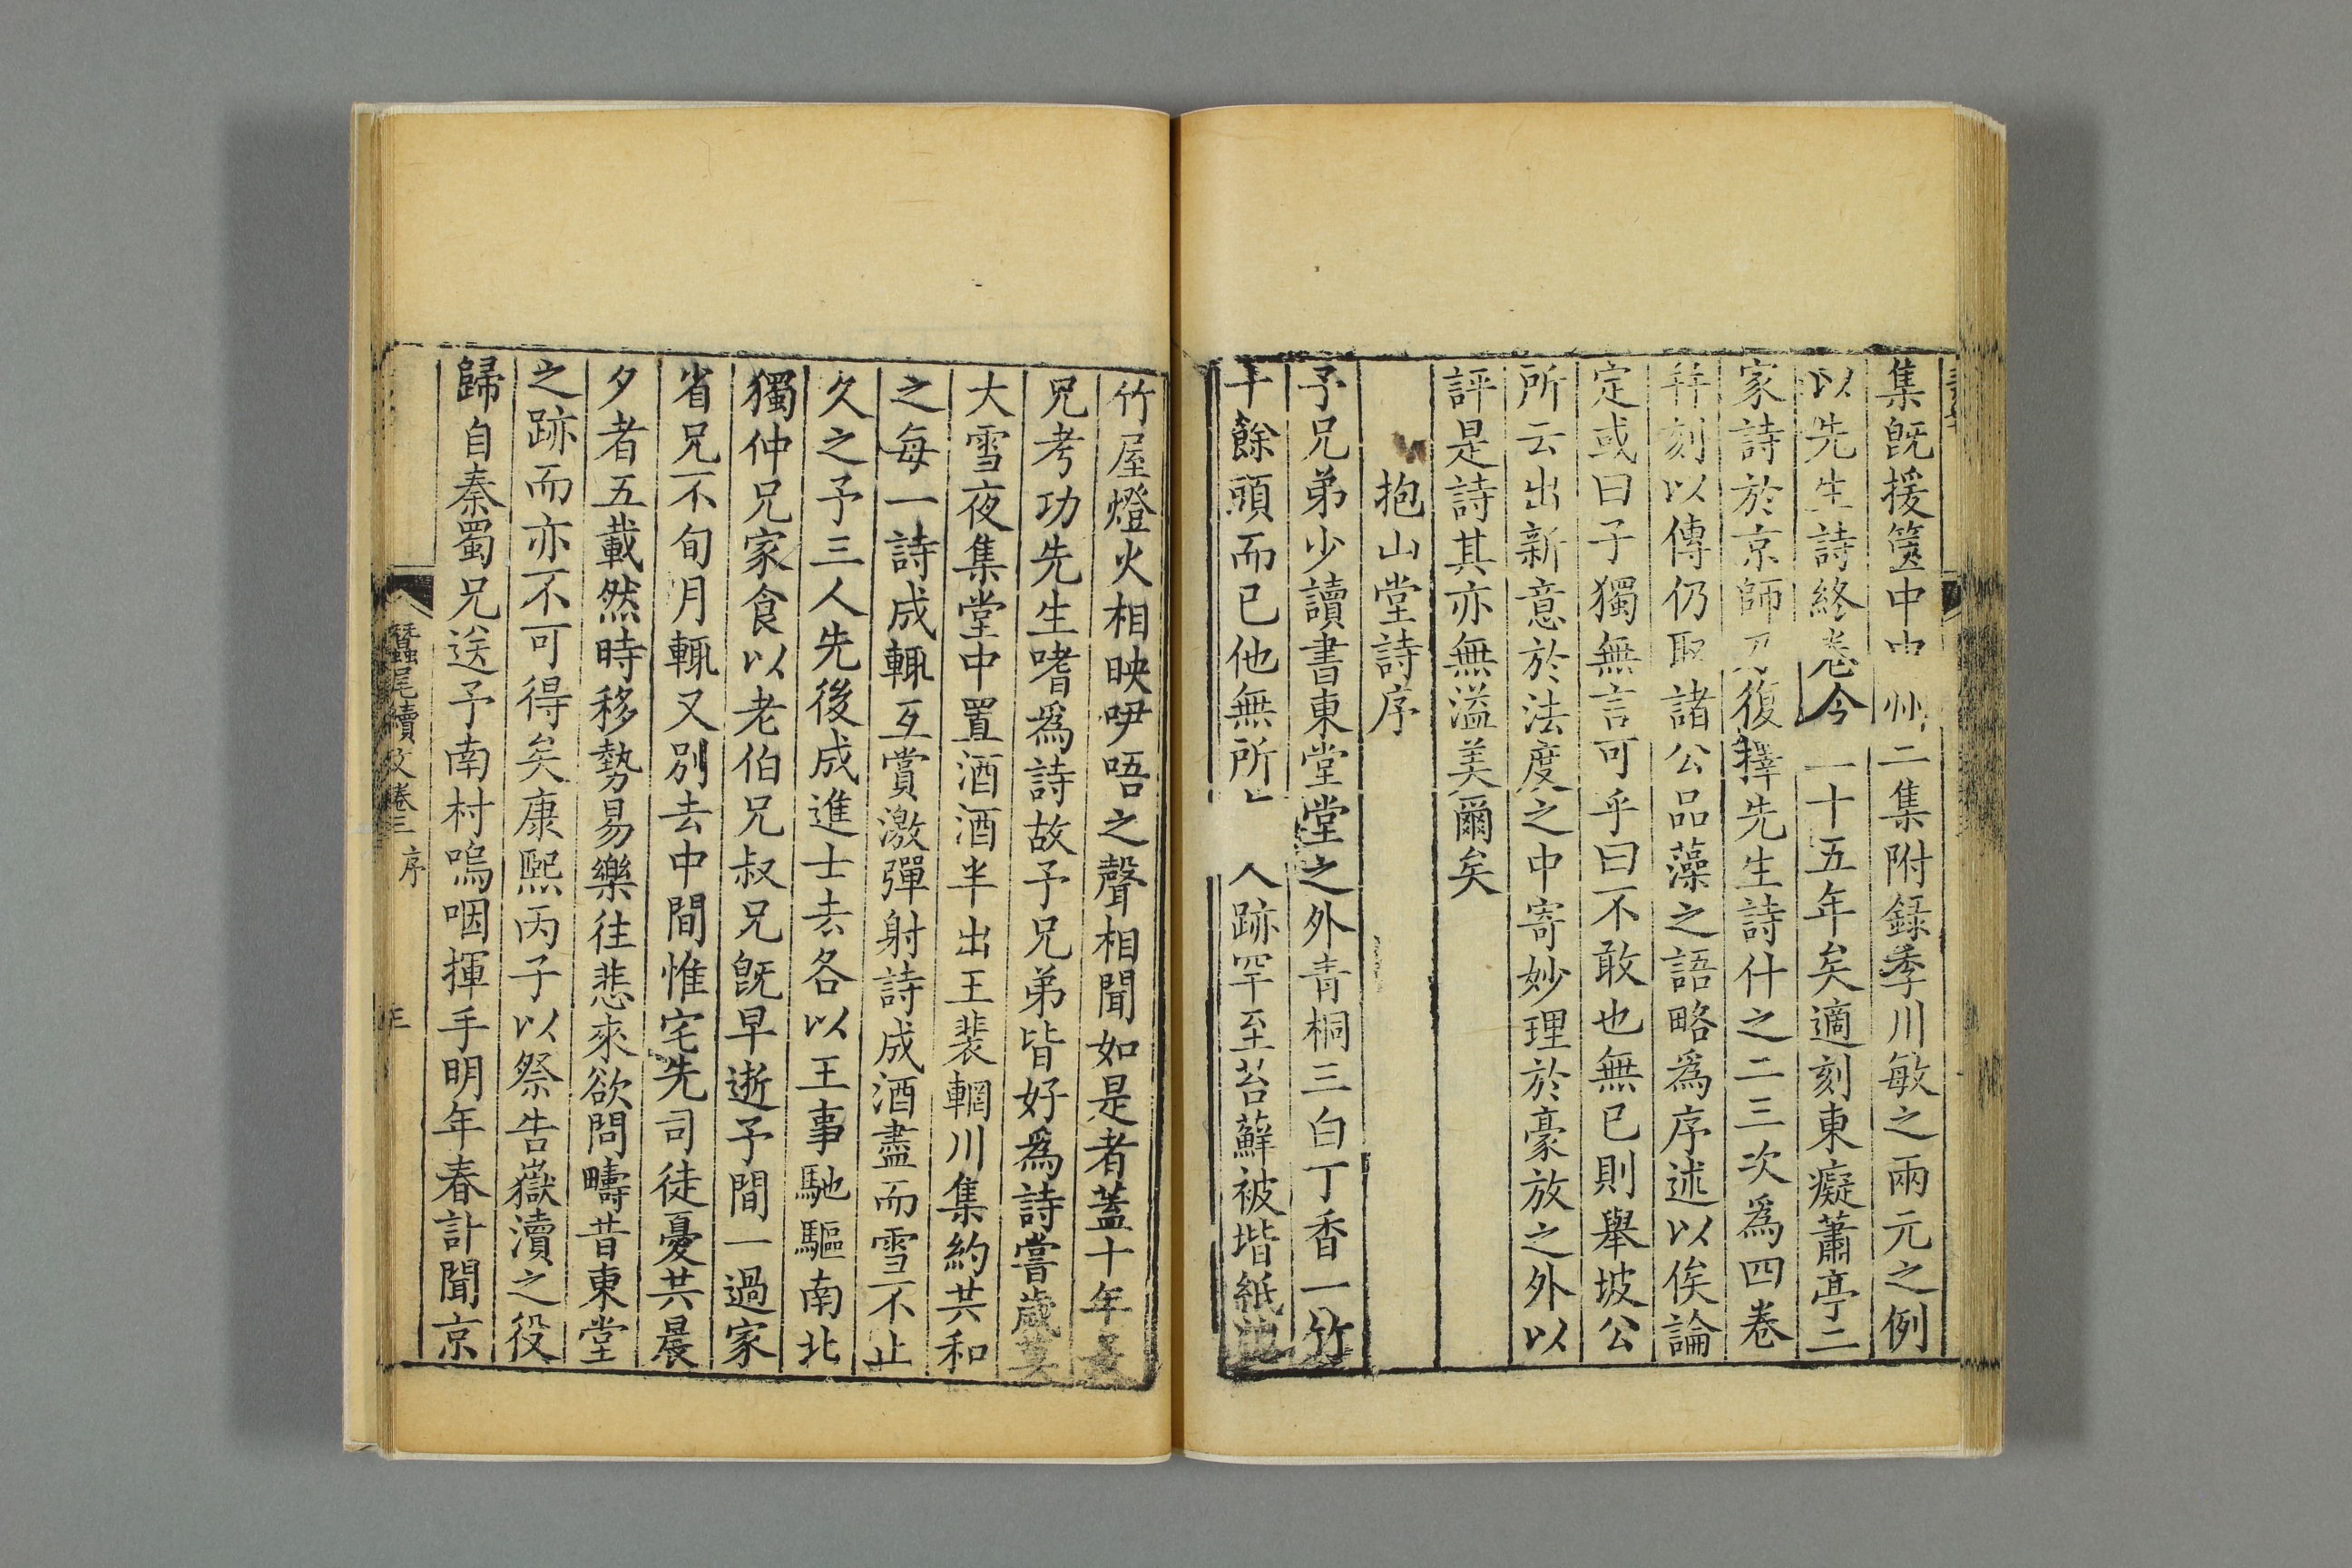 集旣援篋中中州二集附錄季川敏之兩元之例
以先生詩終卷今一十五年矣適刻東癡蕭亭二
家詩於京師乃復擇先生詩什之二三次爲四卷
幷刻以傳仍取諸公品藻之語略爲序述以俟論
定或曰子獨無言可乎曰不敢也無已則舉坡公
所云出新意於法度之中寄妙理於豪放之外以
評是詩其亦無溢美爾矣
抱山堂詩序
予兄弟少讀書東堂堂之外青桐三白丁香一竹
十餘頭而已他無所 人跡罕至苔蘚被堦紙
竹屋燈火相映咿唔之聲相聞如是者蓋十年
兄考功先生嗜爲詩故予兄弟皆好爲詩嘗歲莫
大雪夜集堂中置酒酒半出王裴輞川集約共和
之每一詩成輒互賞激彈射詩成酒盡而雪不止
久之予三人先後成進士去各以王事馳驅南北
獨仲兄家食以老伯兄叔兄旣早逝予間一過家
省兄不旬月輒又別去中間惟宅先司徒憂共晨
夕者五載然時移勢易樂往悲來欲問疇昔東堂
之跡而亦不可得矣康熙丙子以祭告嶽瀆之役
歸自秦蜀兄送予南村嗚咽揮手明年春計聞京
蠶尾續文卷三 序